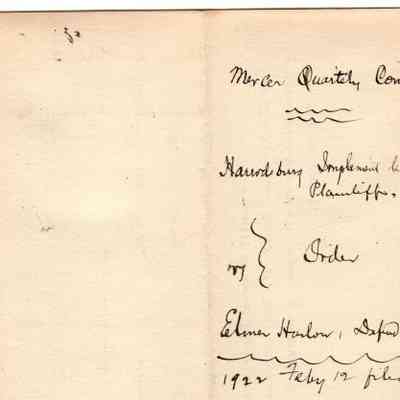 Mercer Quartely Con
Harrodsburg Implement
Plaintiffs.
vs Order
Elmer Harlow, Defend
1922 Feby 12 filed